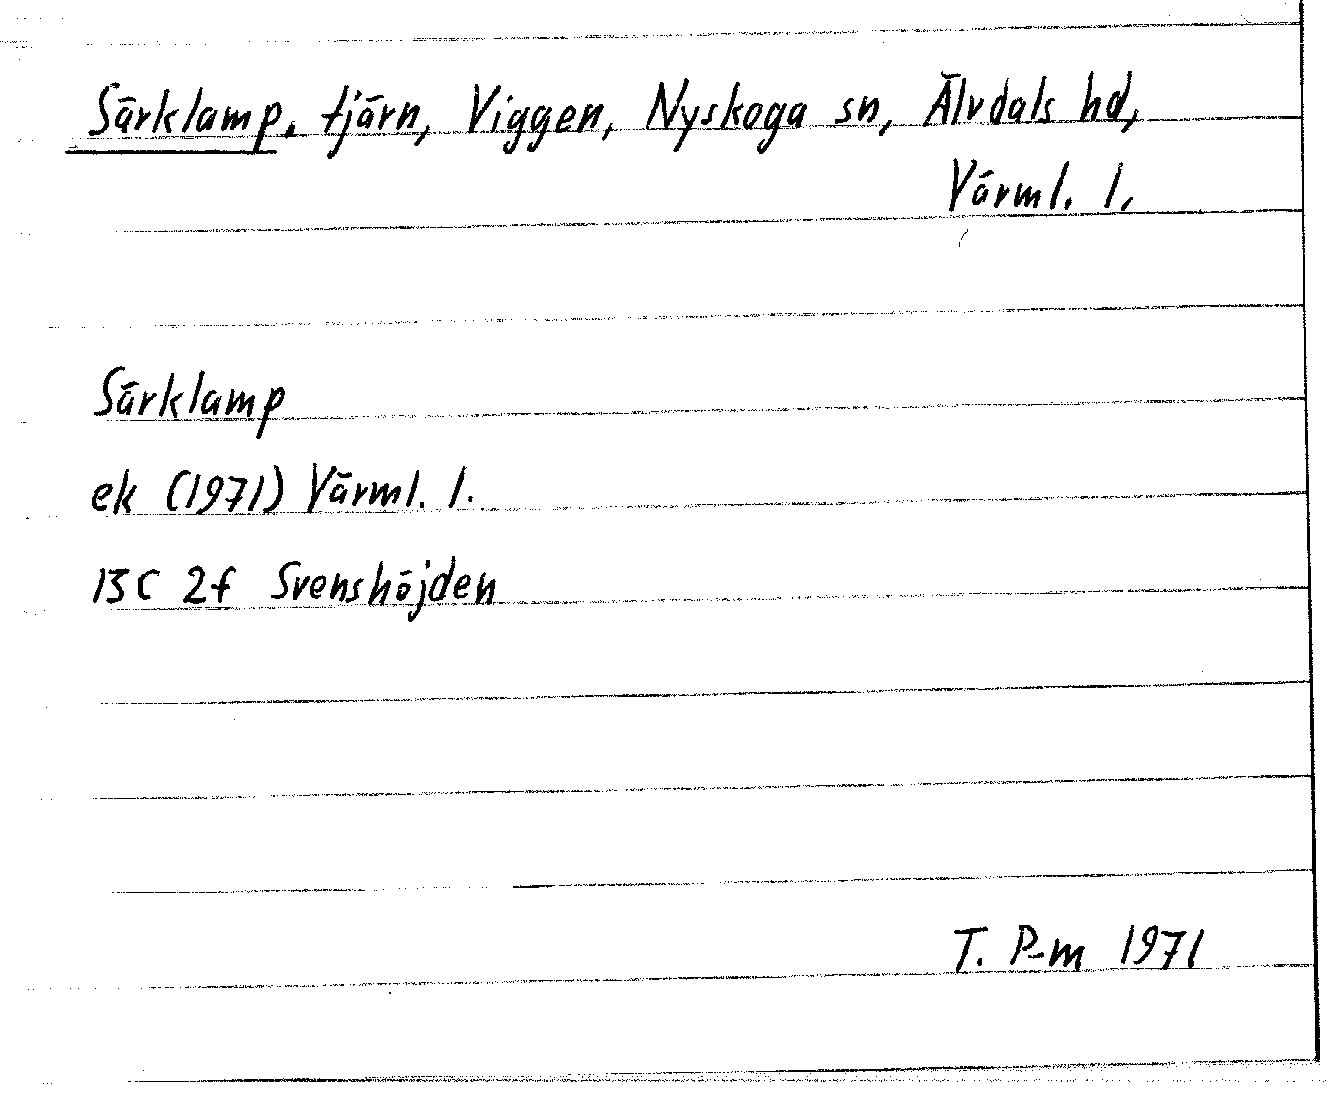 Särklamp, tjärn, Viggen, Nyskoga sn, Älvdals hd,
Värml. l.
Särklamp
ek (1971) Värml. l.
13C 2f Svenshöjden
T. P-m 1971